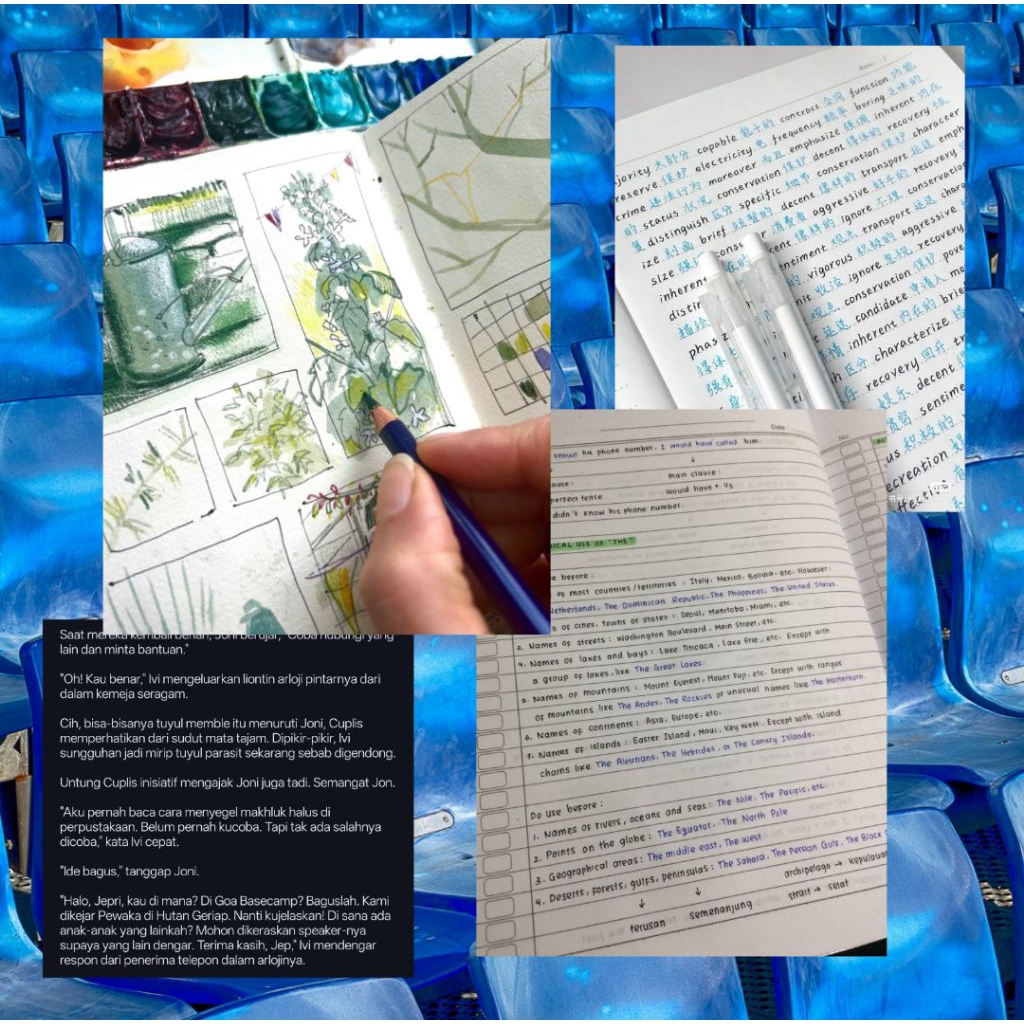 jority 大部分 capable 能干的 contract 合同 function 功能
reserve 保护 electricity 电 frequency 频率 boring 乏味的
crime 违法行为 moreover 而且 emphasize 强调 inherent 内在
的 status 状况 conservation 保护 decent 得体的 recovery 恢
distinguish 区分 specific 细节 conservation 保护 character
ize 刻画 brief 短暂的 decent 得体的 transport 运送 emph
size 强 conser 消费者 aggressive 好斗的 recovery
inherent 在的 cent ignore 不理 conservation
distin ntiment 观点 transport 运送 chara
的 vigorous 积极的 aggressive
phas nit ignore 忽视 recovery
观点 conservation 保护 pove
运送 candidate 申请人 ma
inherent 内在的 brie
h 区分 characterize
recovery 回升 tr
娱乐 decent
sentime
us 积极的
ecreation
ffecti
Date
known his phone number, I would have called him.
↓
ause : main clause :
perfect tense Would have + V3
didn't know his phone number.
ICAL USE OF "THE"
e before :
of most countries /territories : Italy, Mexico, Bolivia, etc. However :
Netherlands, The Dominican Republic, The Philippines, The United States.
of cities, towns or states : Seoul, Manitoba, Miami, etc.
3. Names of streets : Washington Boulevard, Main Street, etc.
4. Names of lakes and bays : Lake Titicaca, Lake Erie, etc. Except with
a group of lakes, like The Great Lakes.
5. Names of mountains : Mount Everest, Mount Fuji, etc. Except with ranges
of mountains like The Andes, The Rockies or unusual names like The Matterhorn.
6. Names of continents : Asia, Europe, etc.
7. Names of islands : Easter Island, Maui, Key West, Except with island
chains like The Aleutians, The Hebrides, or The Canary Islands.
Do use before :
1. Names of rivers, oceans and seas : The Nile, The Pacific, etc.
2. Points on the globe : The Equator, The North Pole
3. Geographical areas : The middle east, The west
4. Deserts, forests, gulfs, peninsulas : The Sahara, The Persian Gulf, The Black
↓ ↓ archipelago → kepulauan
terusan semenanjung strait → selat
Saat mereka kembali berlari, Joni berujar, "Coba hubungi yang
lain dan minta bantuan."
"Oh! Kau benar," Ivi mengeluarkan liontin arloji pintarnya dari
dalam kemeja seragam.
Cih, bisa-bisanya tuyul memble itu menuruti Joni, Cuplis
memperhatikan dari sudut mata tajam. Dipikir-pikir, Ivi
sungguhan jadi mirip tuyul parasit sekarang sebab digendong.
Untung Cuplis inisiatif mengajak Joni juga tadi. Semangat Jon.
"Aku pernah baca cara menyegel makhluk halus di
perpustakaan. Belum pernah kucoba. Tapi tak ada salahnya
dicoba," kata Ivi cepat.
"Ide bagus," tanggap Joni.
"Halo, Jepri, kau di mana? Di Goa Basecamp? Baguslah. Kami
dikejar Pewaka di Hutan Geriap. Nanti kujelaskan! Di sana ada
anak-anak yang lainkah? Mohon dikeraskan speaker-nya
supaya yang lain dengar. Terima kasih, Jep," Ivi mendengar
respon dari penerima telepon dalam arlojinya.